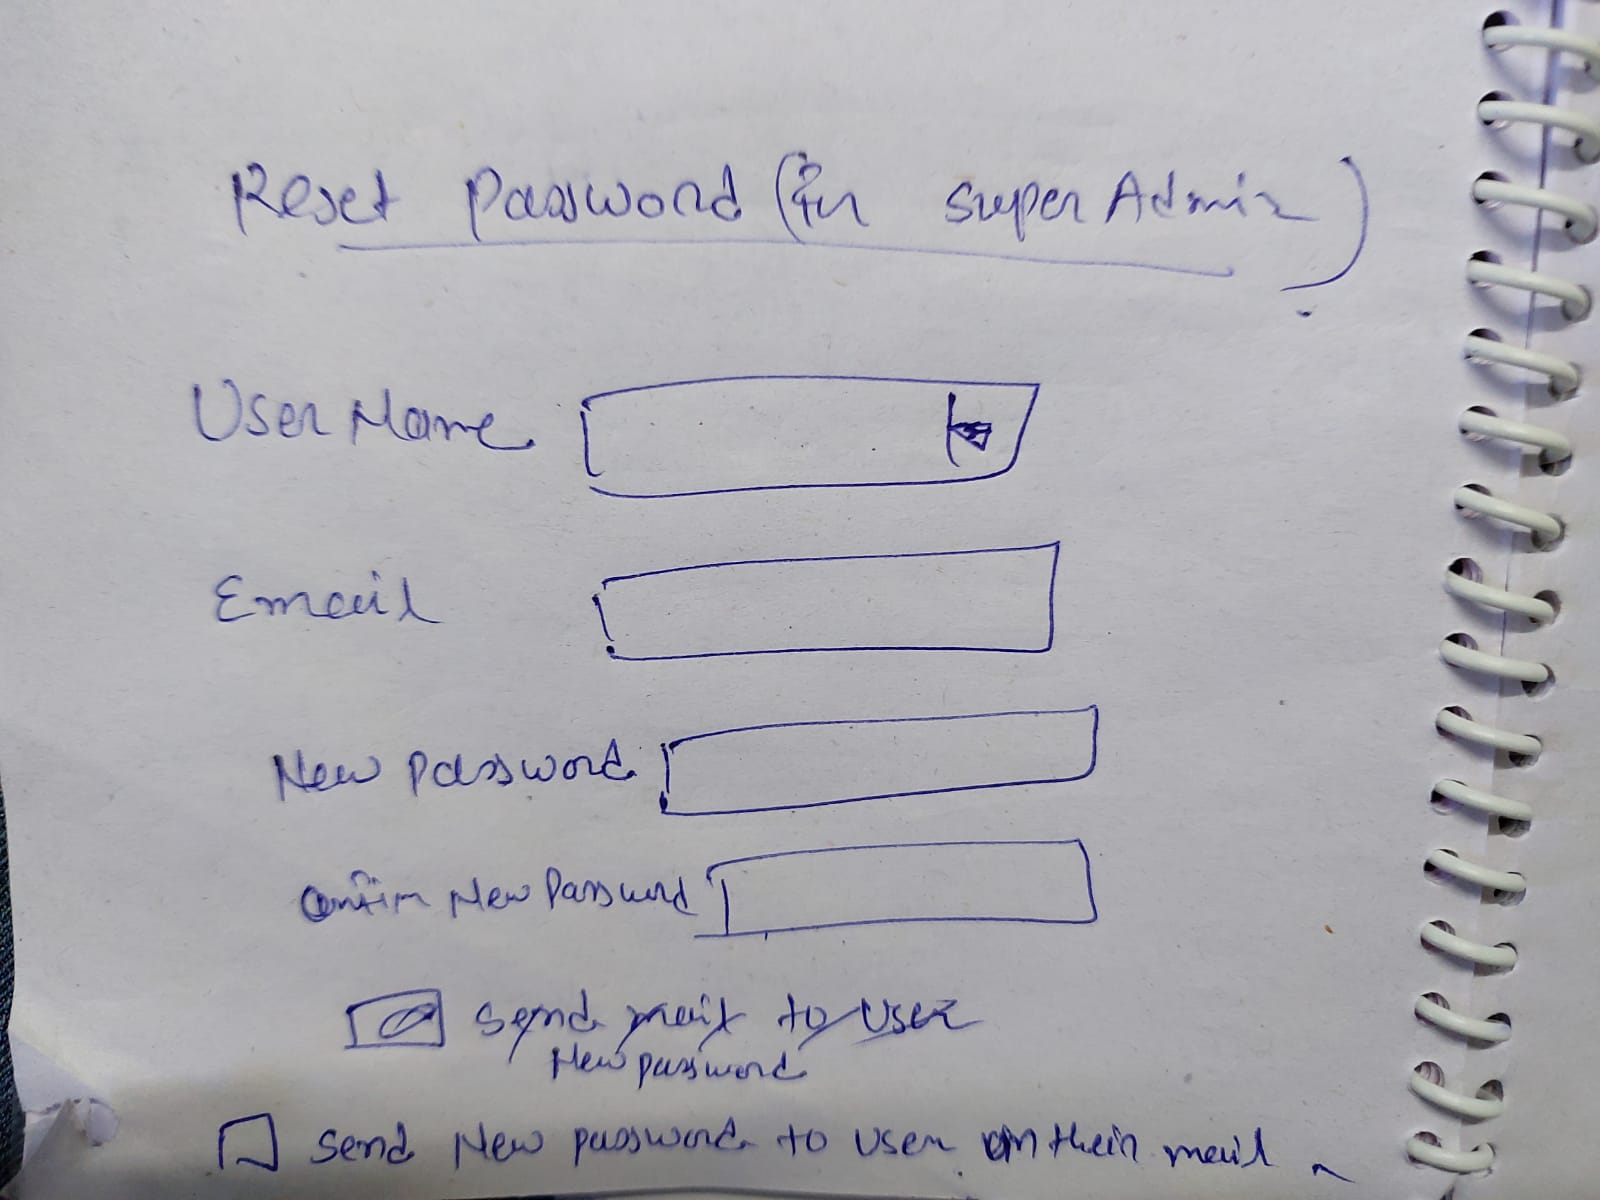 Reset Password (in super Admin)
User Name
Email
New Password
Confirm New Password
Send mail to User
New password
Send New password to user on their mail